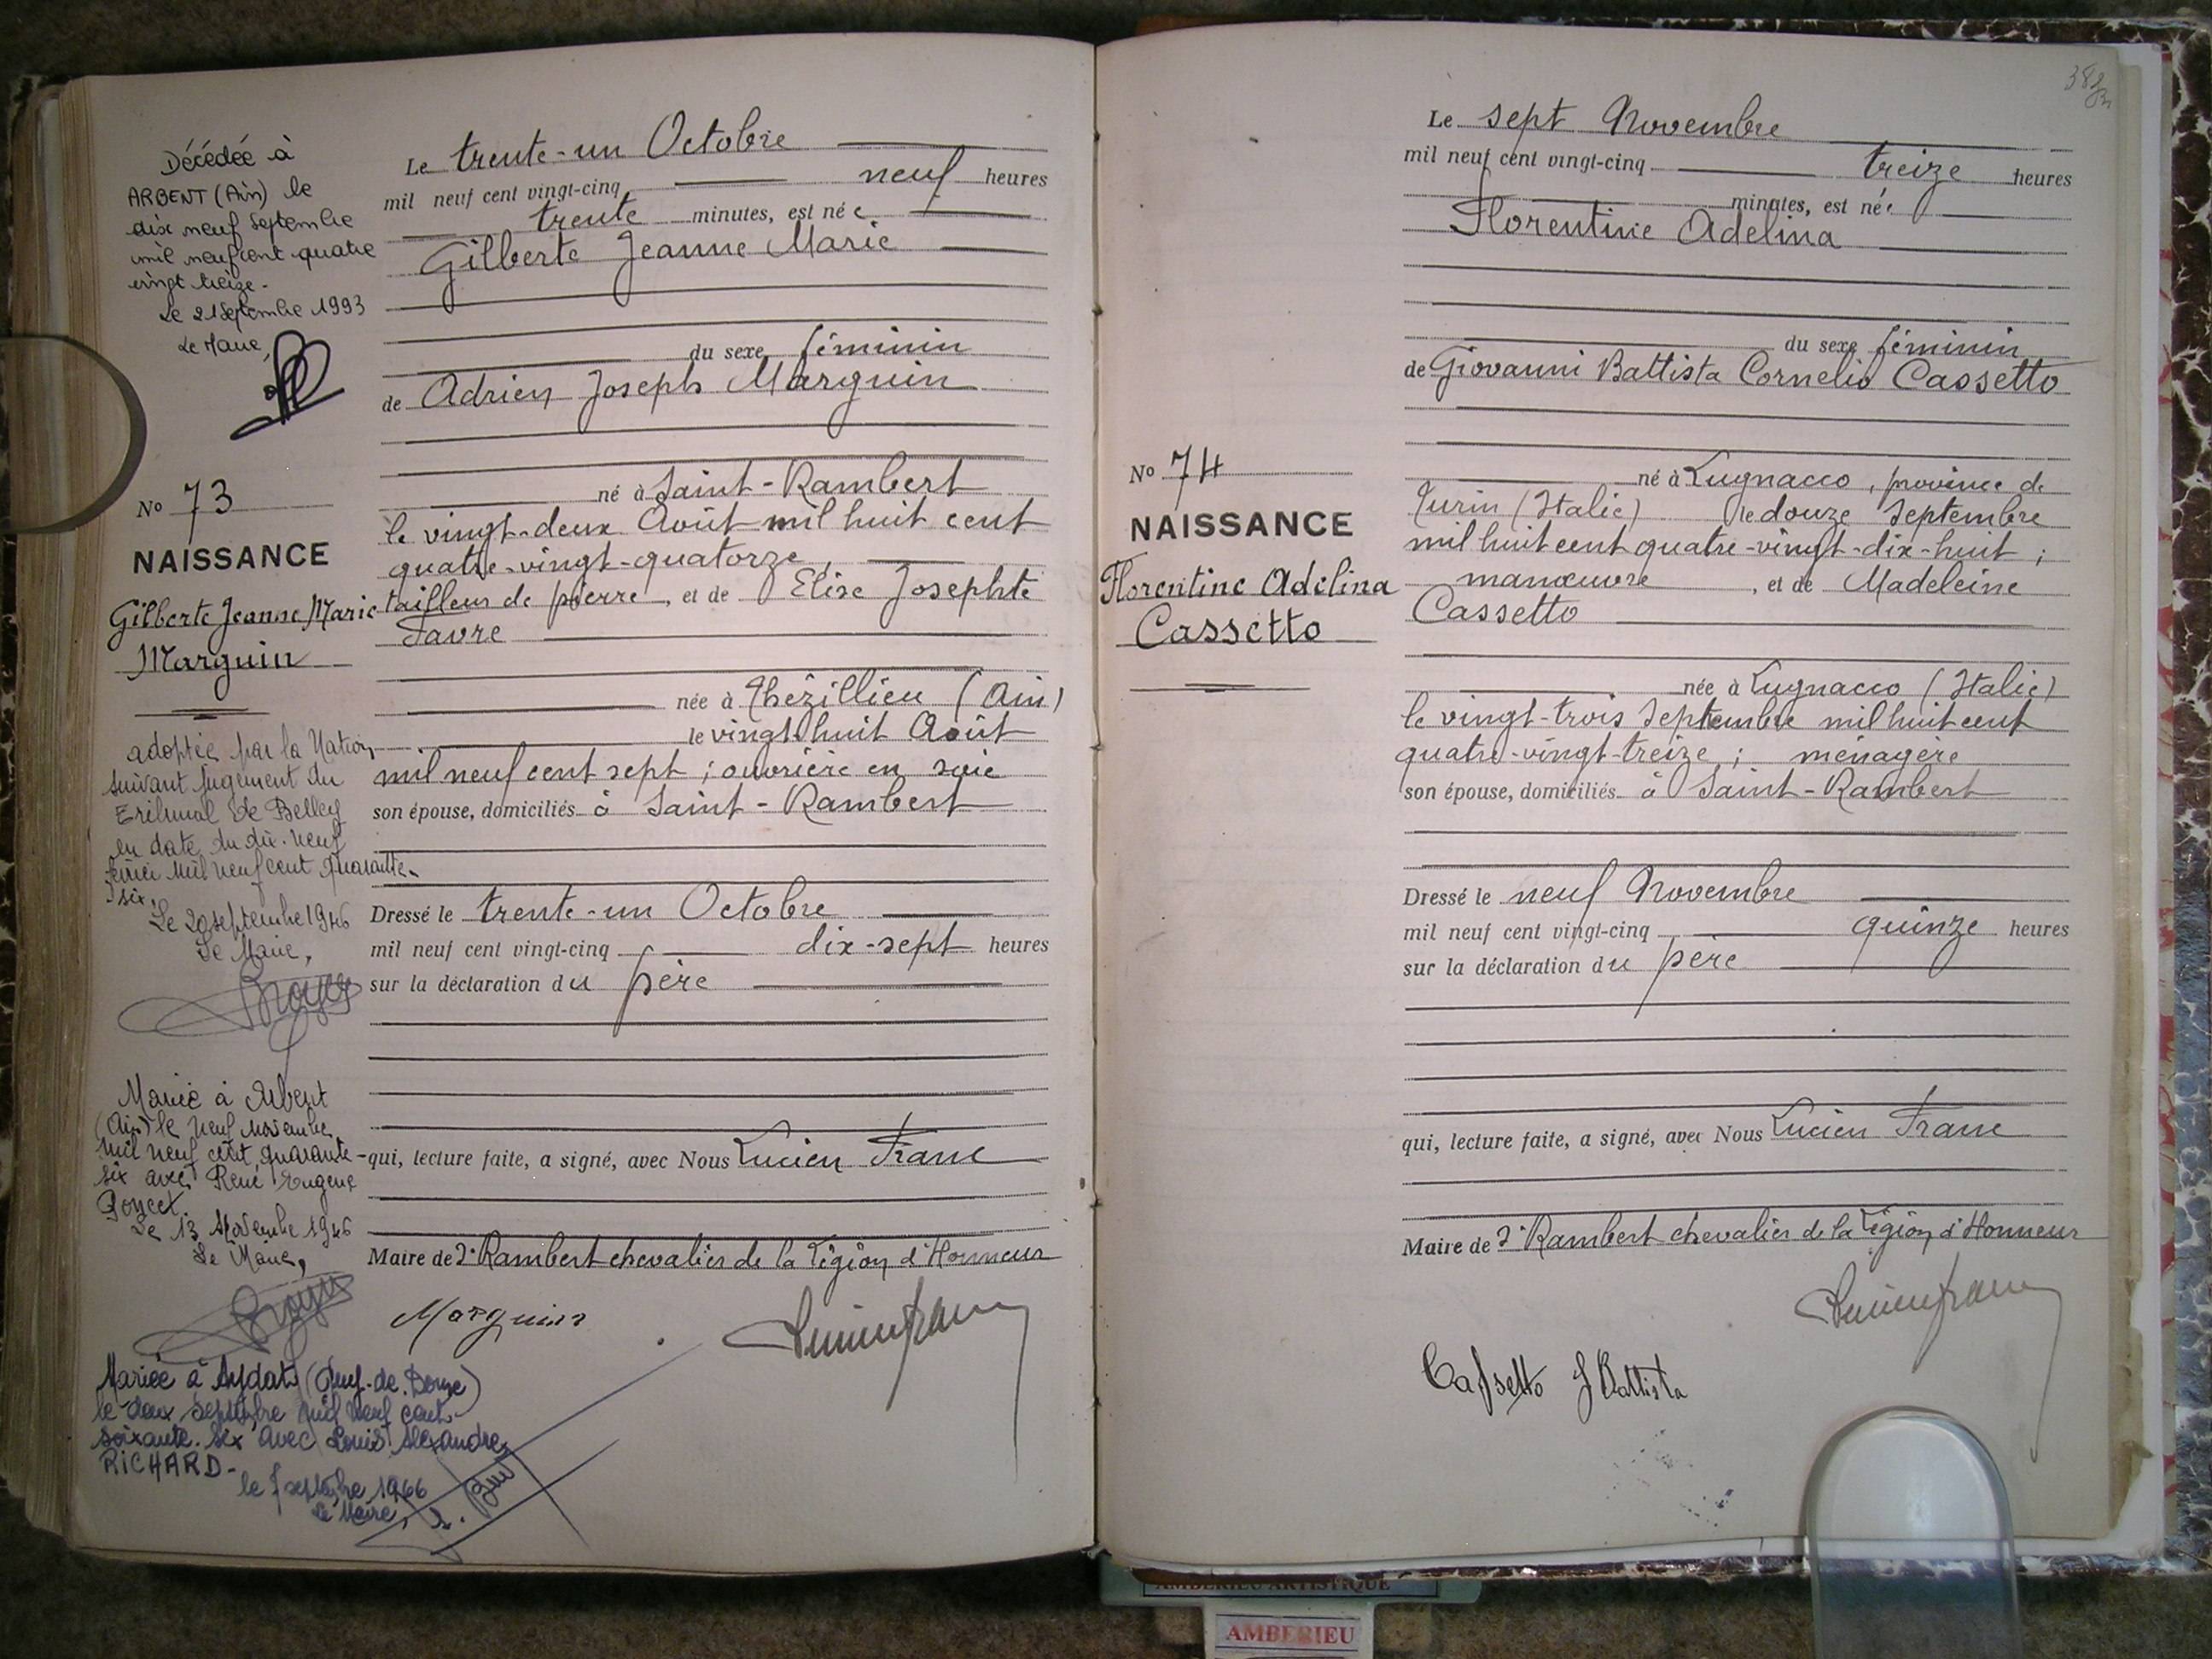 Décédée à
ARBENT (Ain) le
dix neuf Septembre
mil neuf cent quatre
vingt treize.
Le 21 Septembre 1993
Le Maire,
No 73
NAISSANCE
Gilberte Jeanne Marie
Marguin
adoptée par la Nation
suivant jugement du
Tribunal de Belley
en date du dix-neuf
mil neuf cent quarante-
six.
Le 20 septembre 1946
Le Maire,
Mariée à Arbent
(Ain) le neuf novembre
mil neuf cent quarante-
six avec René Eugène
Poncet.
Le 13 Novembre 1946
Le Maire,
Mariée à Aydat (Puy-de-Dome)
le deux septembre mil neuf cent
soixante-six avec Louis Alexandre
RICHARD-
le 7 septembre 1966
Le Maire,
Le trente-un Octobre
mil neuf cent vingt-cinq neuf heures
trente minutes, est née
Gilberte Jeanne Marie
du sexe féminin
de Adrien Joseph Marguin
né à Saint-Rambert
le vingt-deux Août mil huit cent
quatre-vingt-quatorze,
tailleur de pierre, et de Elise Josephte
Favre
née à Thézillieu (Ain)
le vingt-huit Août
mil neuf cent sept ; ouvrière en soie
son épouse, domiciliés à Saint-Rambert
Dressé le trente-un Octobre
mil neuf cent vingt-cinq dix-sept heures
sur la déclaration du père
qui, lecture faite, a signé, avec Nous Lucien Franc
Maire de St Rambert chevalier de la Légion d'Honneur
Marguin
Lucien franc
382
No 74
NAISSANCE
Florentine Adelina
Cassetto
Le sept Novembre
mil neuf cent vingt-cinq treize heures
minutes, est née
Florentine Adelina
du sexe féminin
de Giovanni Battista Cornelio Cassetto
né à Lugnacco, province de
Turin (Italie) le douze Septembre
mil huit cent quatre-vingt-dix-huit ;
manœuvre, et de Madeleine
Cassetto
née à Lugnacco (Italie)
le vingt-trois Septembre mil huit cent
quatre-vingt-treize ; ménagère
son épouse, domiciliés à Saint-Rambert
Dressé le neuf Novembre
mil neuf cent vingt-cinq quinze heures
sur la déclaration du père
qui, lecture faite, a signé, avec Nous Lucien Franc
Maire de St Rambert chevalier de la Légion d'Honneur
Lucien franc
Cassetto J Battista
AMBERIEU ARTISTIQUE
AMBERIEU